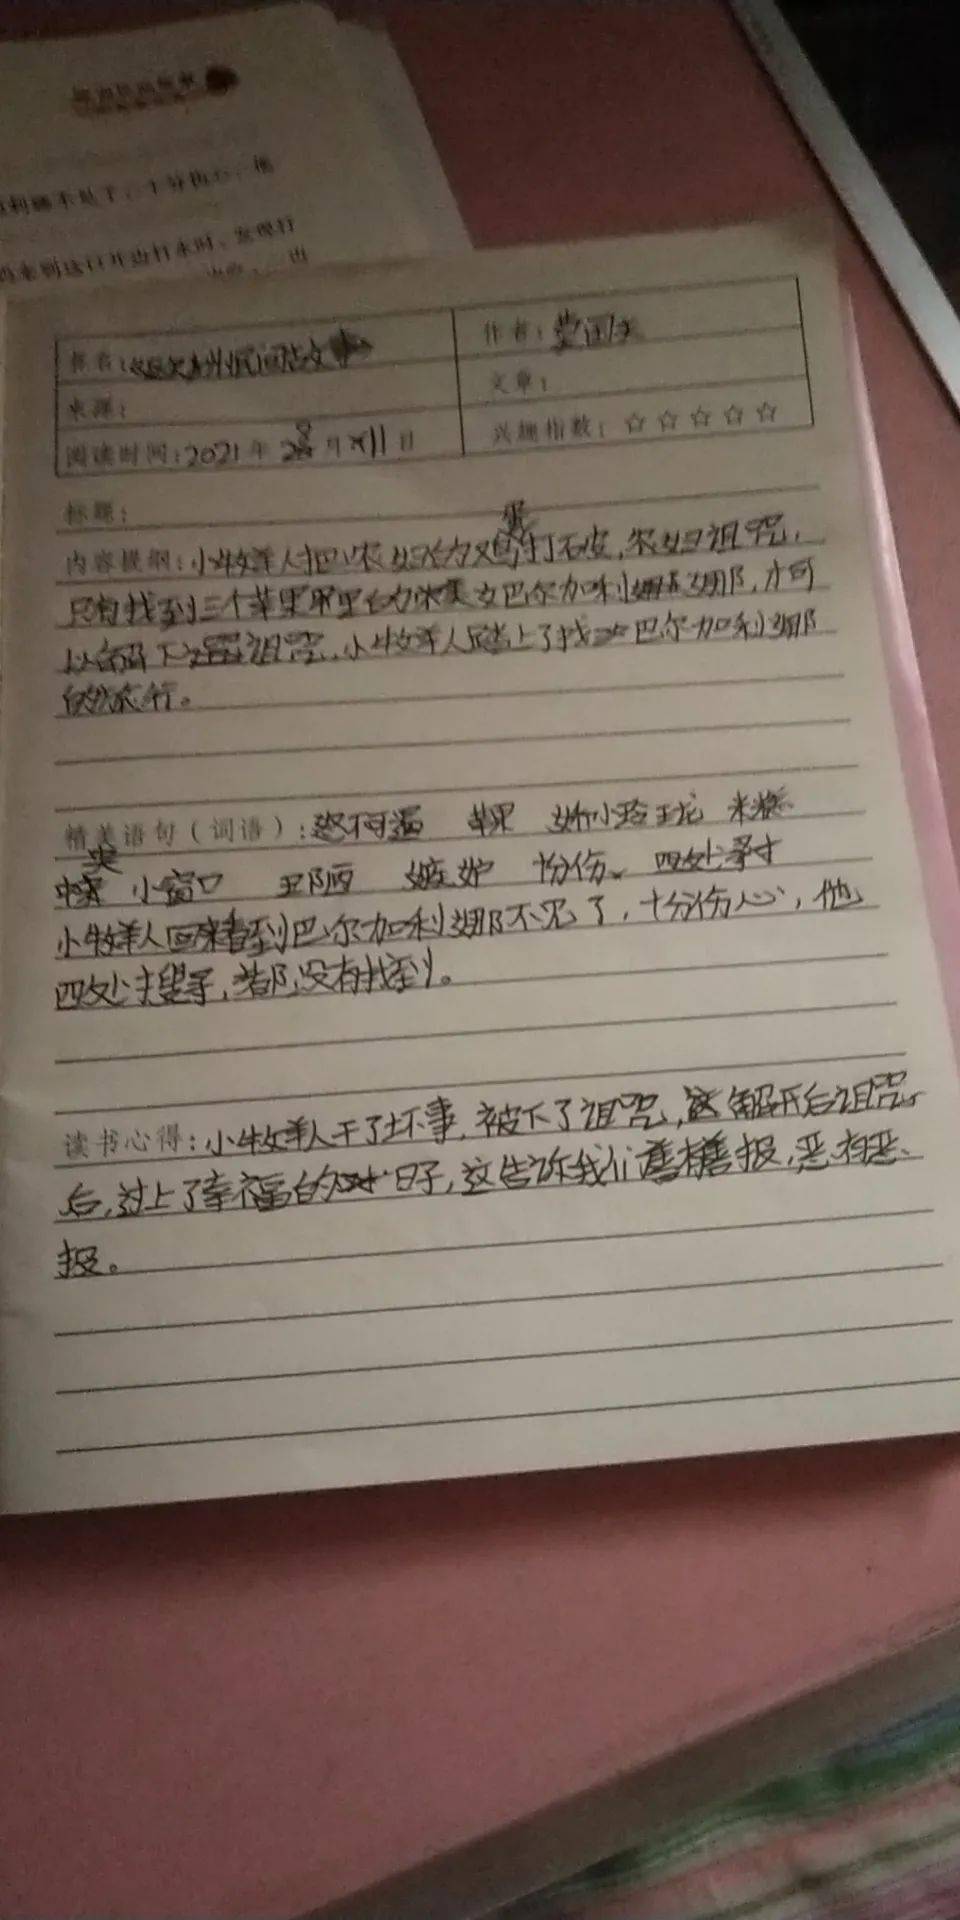 利娜不见了，十分伤心，他
再来到这口井边打水时，发现打
书名：欧洲民间故事
作者：
来源：
文章：
阅读时间：2021年8月11日
兴趣指数：☆☆☆☆☆
标题：
内容提纲：小牧羊人把农妇的鸡蛋打石皮，农妇诅咒，
只有找到三个苹果里的美女巴尔加利娜，才可
以解下诅咒，小牧羊人踏上了找巴尔加利娜
的旅行。
精美语句（词语）：怒不可遏 苹果 娇小玲珑 米糕
小窗口 丑陋 嫉妒 份伤 四处寻
小牧羊人回来看到巴尔加利娜不见了，十分伤心，他
四处寻，都没有找到。
读书心得：小牧羊人干了坏事，被下了诅咒，解开后诅咒
后，过上了幸福的日子，这告诉我们善有善报，恶有恶
报。